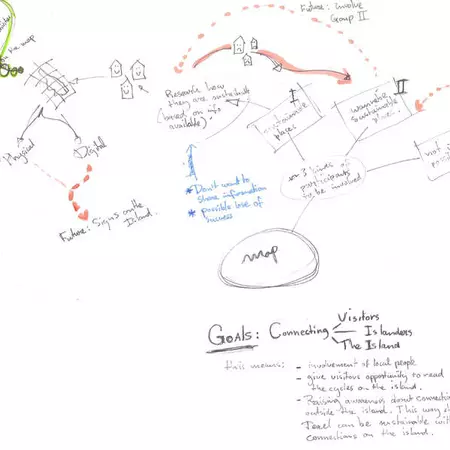 the map
Physical
Digital
Future: Signs on the
Island.
Future: Involve
Group II
Research how
they are sustainable
(based on info
available)
* Don't want to
share information
* possible lose of
I
sustainable
places
II
sustainable
3 kinds of
participants
to be involved
not
map
GOALS: Connecting
Visitors
Islanders
The Island
this means:
- involvement of local people
- give visitors opportunity to read
the cycles on the island.
- Raising awareness about connection
outside the island. This way
Texel can be sustainable with
connections on the island.